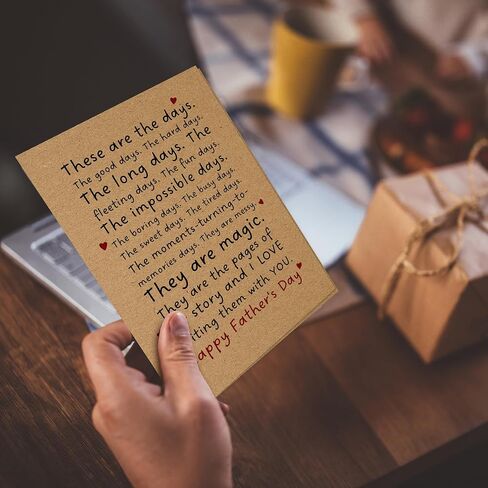 These are the days.
The good days. The hard days.
The long days. The
fleeting days. The fun days.
The impossible days.
The boring days. The busy days.
The sweet days. The tired days
The moments-turning-to-
memories days. They are messy.
They are magic.
They are the pages of
story and I LOVE
ting them with YOU.
appy Father's Day